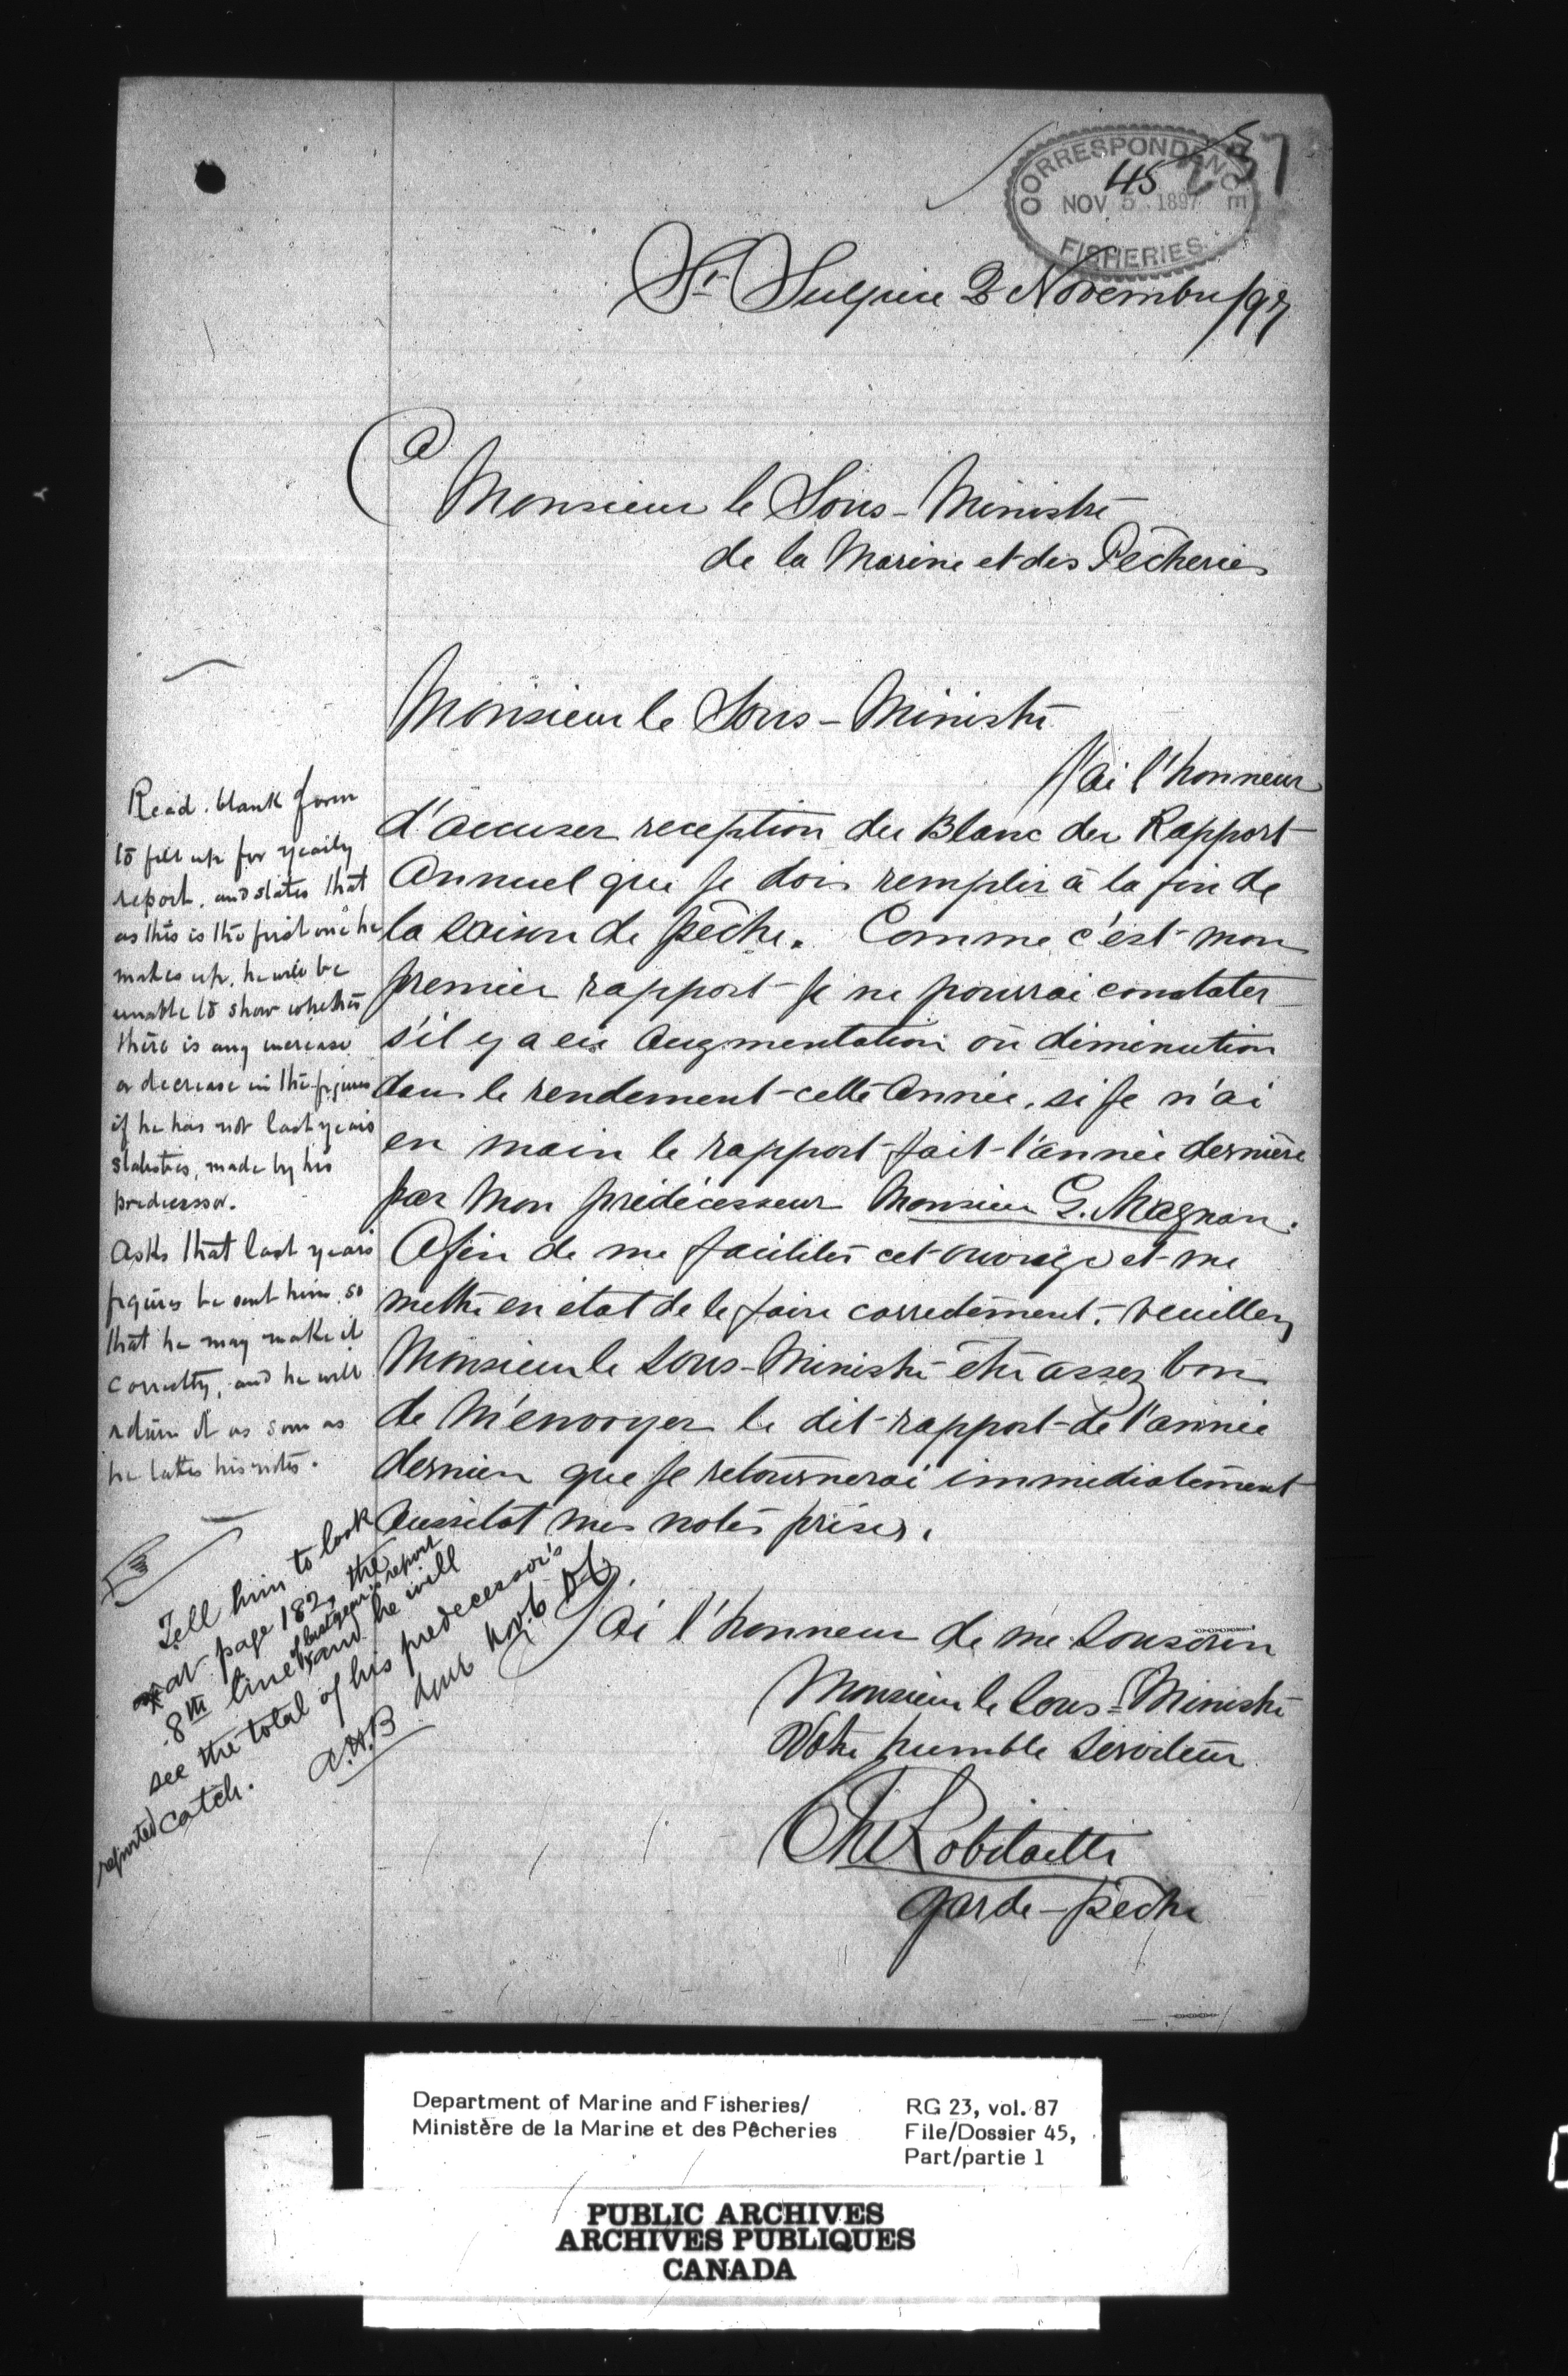 CORRESPONDENCE
45 237
NOV 5 1897
FISHERIES
St Sulpice 3 Novembre/97
A
Monsieur le Sous-Ministre
de la Marine et des Pêcheries
Monsieur le Sous-Ministre
J'ai l'honneur
d'accuser reception du Blanc du Rapport
Annuel que je dois remplir à la fin de
la saison de pêche. Comme c'est mon
premier rapport je ne pourrai constater
s'il y a eu augmentation ou diminution
dans le rendement cette Année, si je n'ai
en main le rapport fait l'année dernière
par mon prédécesseur Monsieur G. Magnan.
Afin de me faciliter cet ouvrage et me
mettre en état de le faire correctement. veuillez
Monsieur le Sous-Ministre être assez bon
de m'envoyer le dit rapport de l'année
dernière que je retournerai immediatement
aussitot mes notes prises.
J'ai l'honneur de me souscrire
Monsieur le Sous-Ministre
Votre humble serviteur
Robitaille
garde-pêche
Read. blank form
to fill up for yearly
report. and states that
as this is the first one he
makes up, he will be
unable to show whether
there is any increase
or decrease in the figures
if he has not last years
statistics, made by his
predecessor.
Asks that last years
figures be sent him so
that he may make it
correctly, and he will
return it as soon as
he takes his notes.
Tell him to look
at page 182, the
8th line of last year's report and he will
see the total of his predecessor's
reported catch.
Nov. 6
Department of Marine and Fisheries/
Ministère de la Marine et des Pêcheries
RG 23, vol. 87
File/Dossier 45,
Part/partie 1
PUBLIC ARCHIVES
ARCHIVES PUBLIQUES
CANADA